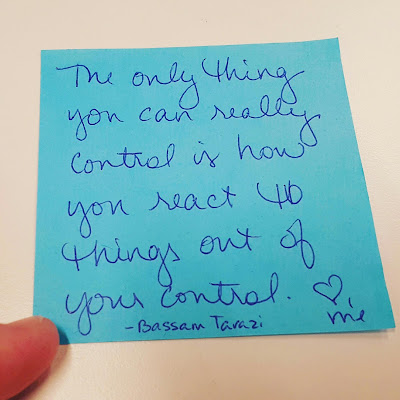 The only thing
you can really
control is how
you react to
things out of
your control. ♡
me
-Bassam Tarazi